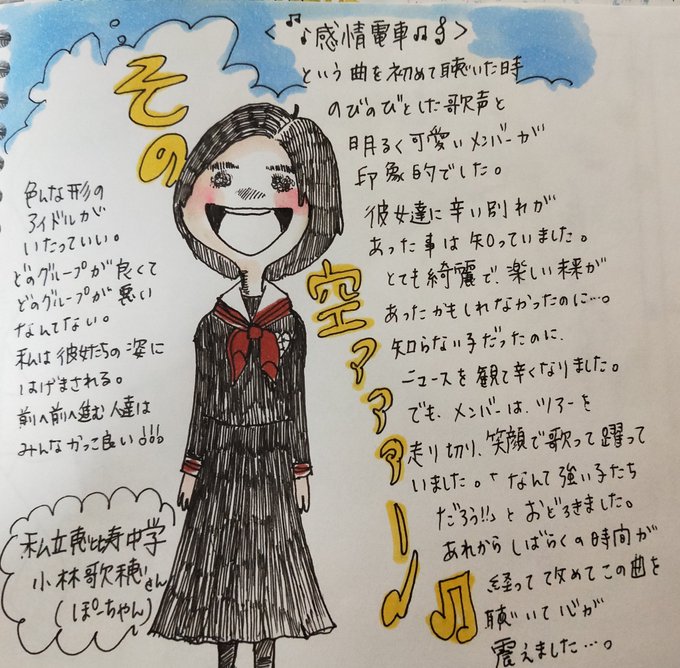 <♪感情電車♫𝄞>
という曲を初めて聴いた時
のびのびとした歌声と
明るく可愛いメンバーが
印象的でした。
彼女達に辛い別れが
あった事は知っていました。
とても綺麗で、楽しい未来が
あったかもしれなかったのに…。
知らない子だったのに、
ニュースを観て辛くなりました。
でも、メンバーは、ツアーを
走り切り、笑顔で歌って躍って
いました。「なんて強い子たち
だろう!!」とおどろきました。
あれからしばらくの時間が
経って改めてこの曲を
聴いて心が
震えました…。
その
空ァァァァー♩
♫
色んな形の
アイドルが
いたっていい。
どのグループが良くて
どのグループが悪い
なんてない。
私は彼女たちの姿に
はげまされる。
前へ前へ進む人達は
みんなかっこ良い!!!
私立恵比寿中学
小林歌穂さん
(ぽーちゃん)